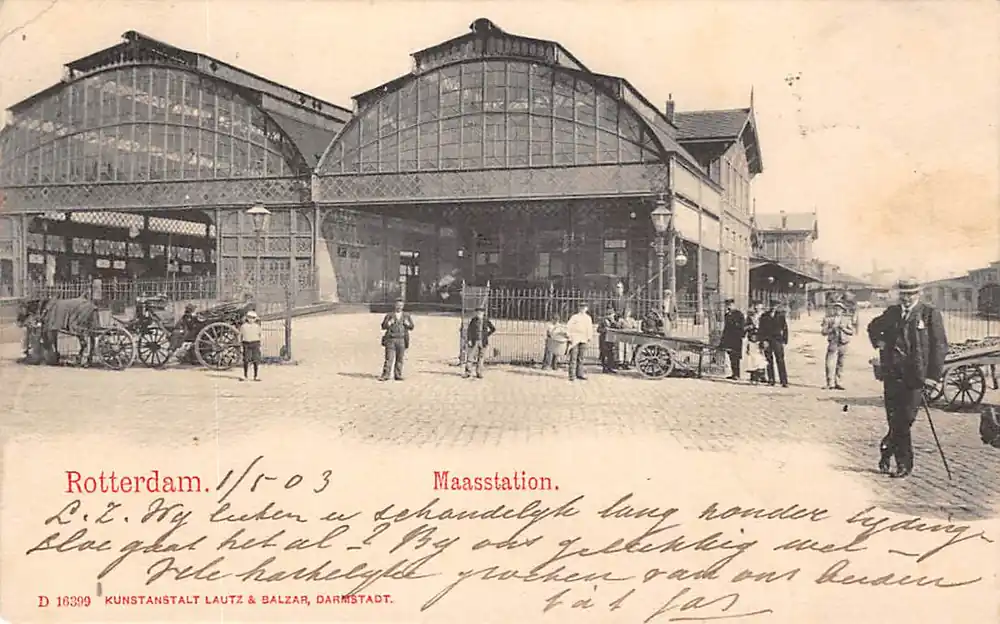 Rotterdam. 1/5 03 Maasstation.
L. Z. Wy laten u schandelyk lang zonder tyding
Hoe gaat het al? By ons gelukkig wel –
Vele hartelyke groeten van ons beiden
D 16399 KUNSTANSTALT LAUTZ & BALZAR, DARMSTADT.